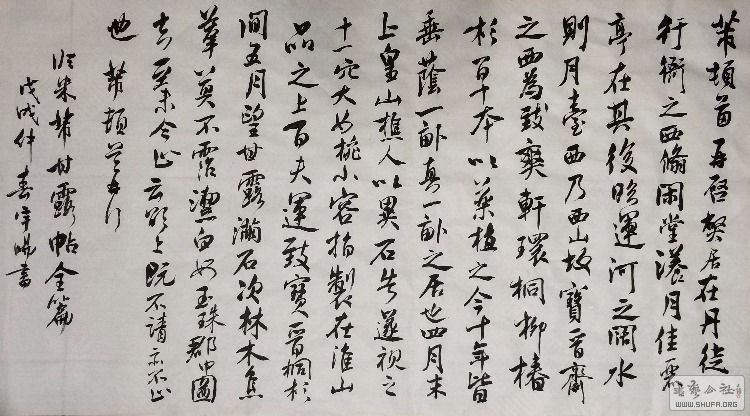 芾頓首再啓弊居在丹徒
行衙之西脩閑堂漾月佳麗
亭在其後臨運河之闊水
則月臺西乃西山故寶晉齋
之西為致爽軒環桐柳椿
杉百十本以藥植之今十年皆
垂蔭一畝真一畝之居也四月末
上皇山樵人以異石告遂視之
十一穴大如椀小容指製在淮山
一品之上百夫運致寶晉桐杉
間五月望甘露滿石次林木焦
葦莫不霑潔白如玉珠郡中圖
去棗未令止云欲上既不請亦不止
也 芾頓首再行
臨米芾甘露帖全篇
戊戌仲春 書
書藝公社
WWW.SHUFA.ORG